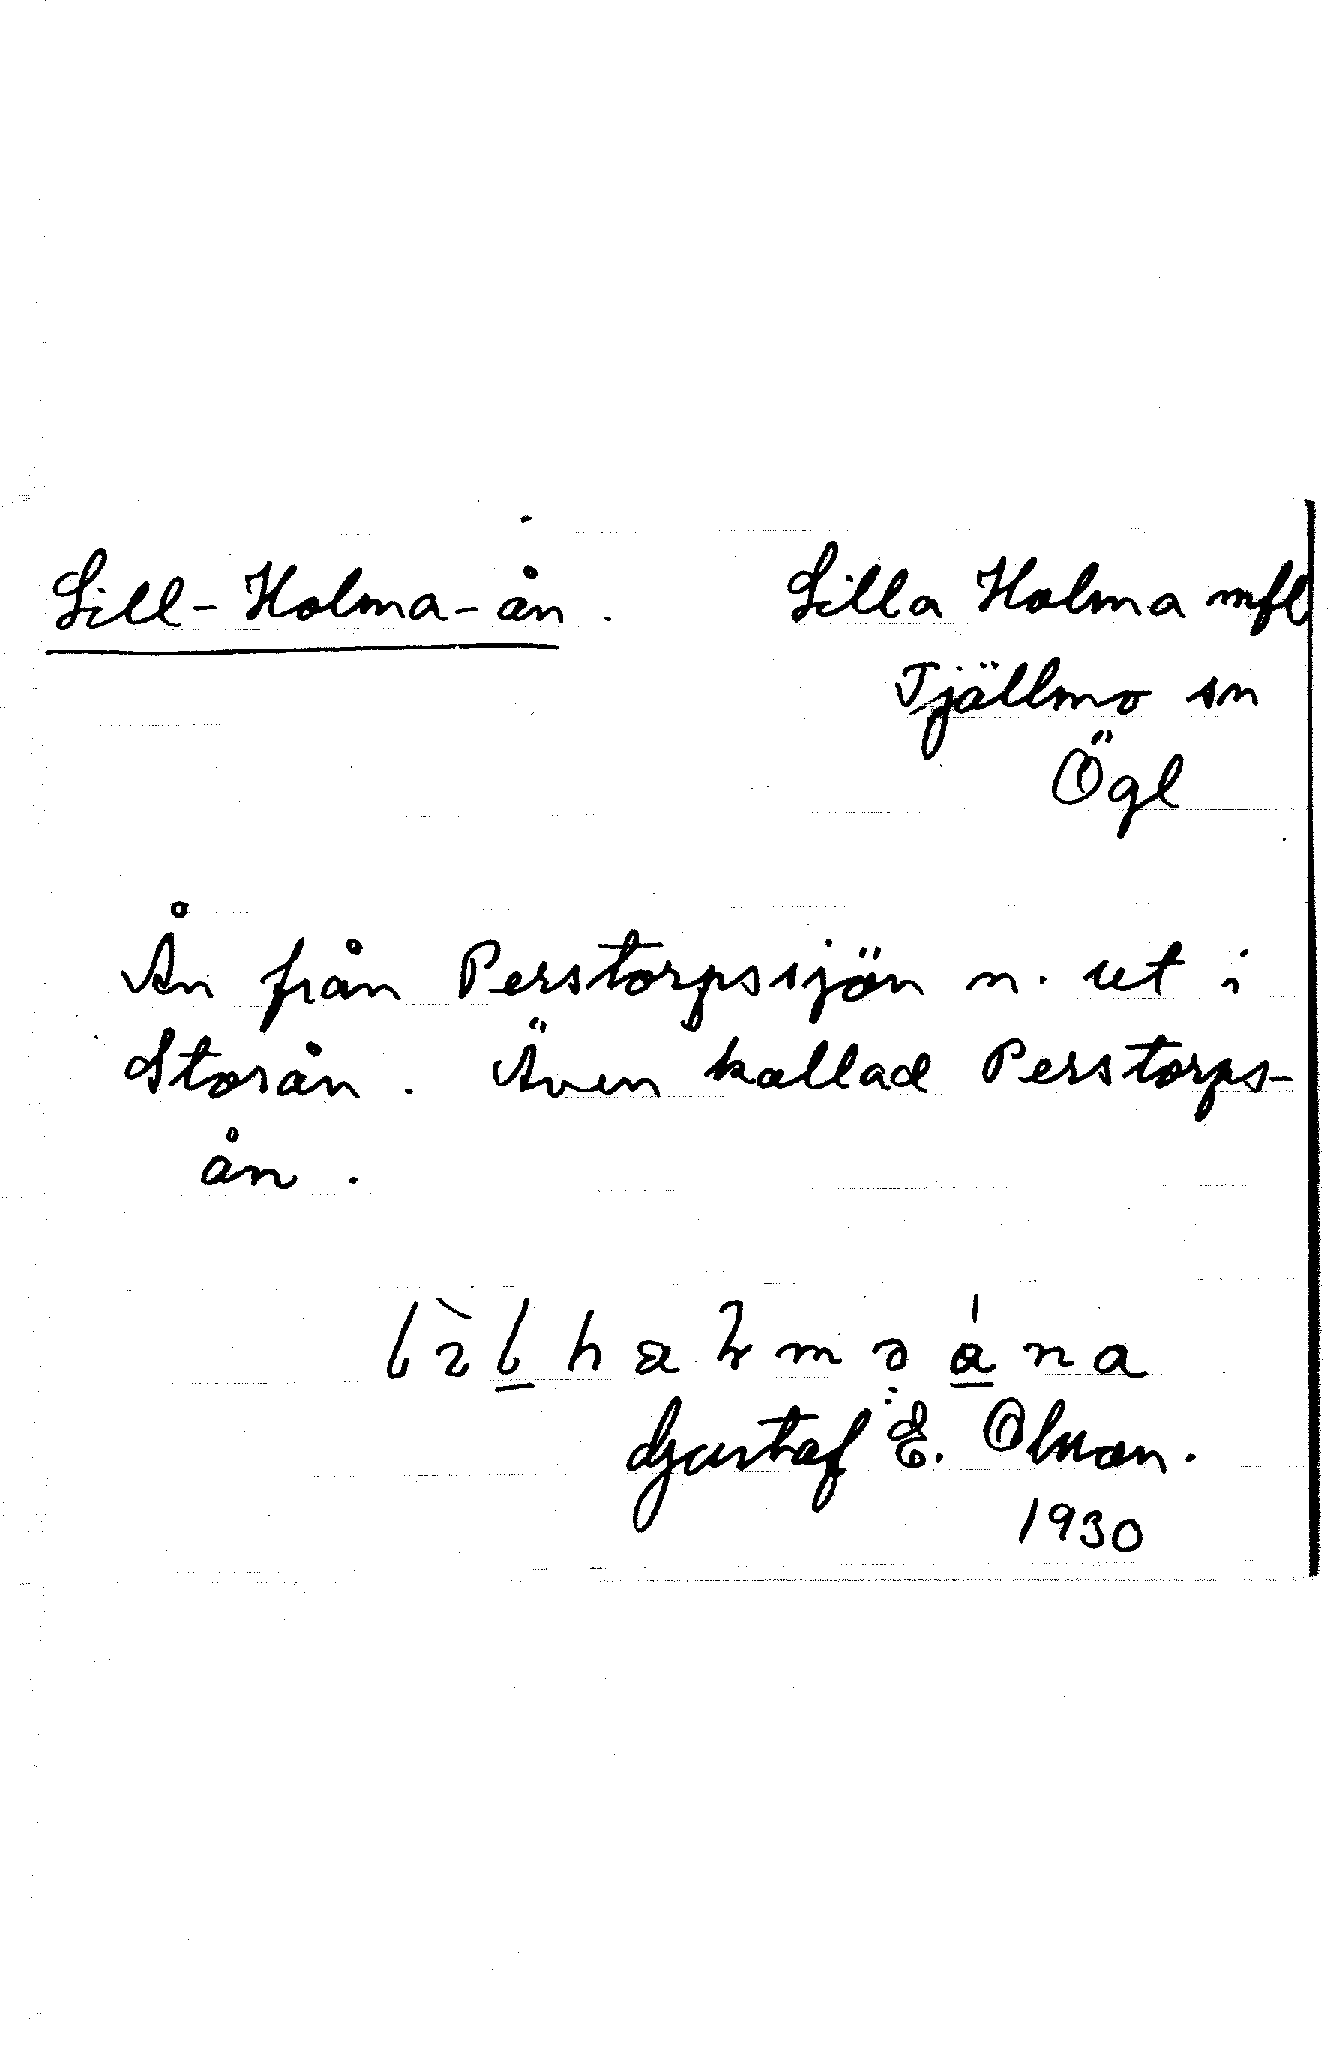 Lill-Holma-ån.
Lilla Holma mfl
Tjällmo sn
Ögl
Ån från Perstorpssjön n. ut i
Storån. Även kallad Perstorps-
ån.
Gustaf E. Olsson.
1930